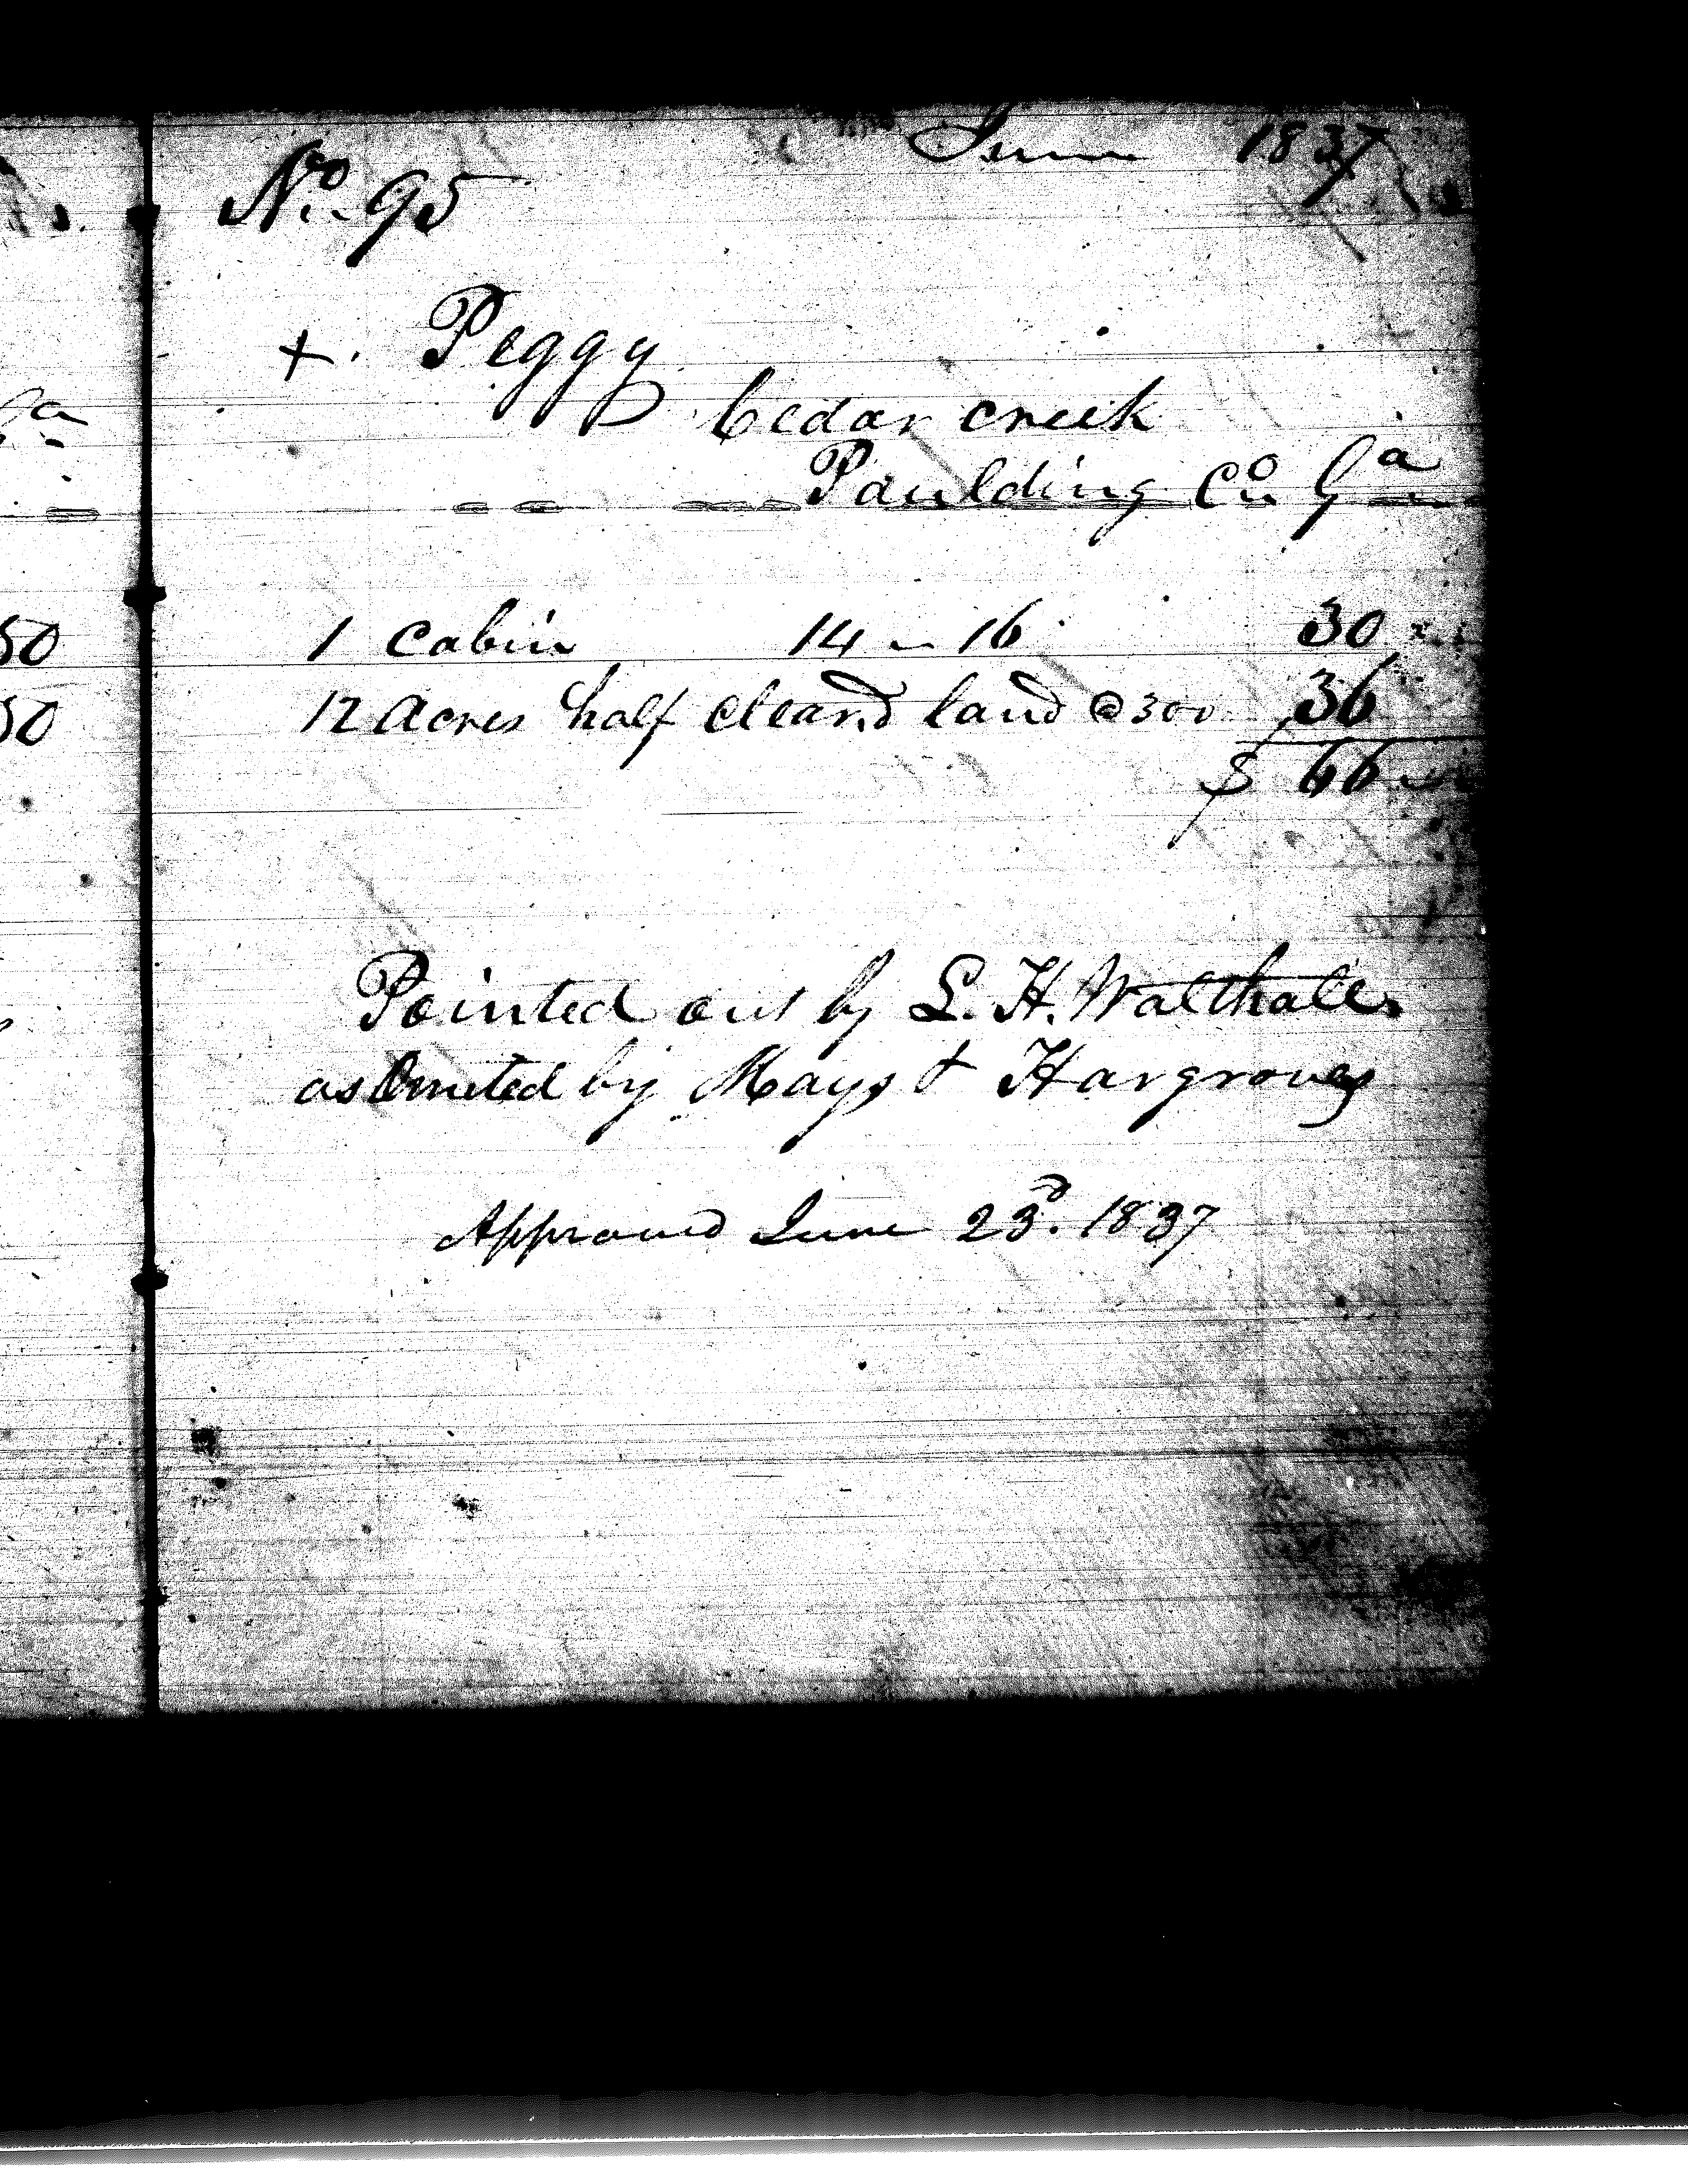 June 1837
No. 95
+. Peggy
Cedar creek
Paulding Co Ga
1 Cabin 14 - 16 30
12 Acres half cleard land @ 300 36
$ 66
Pointed out by S. H. Walthall
as Omited by Mays + Hargroves
Approved June 23d. 1837
ga
50
50